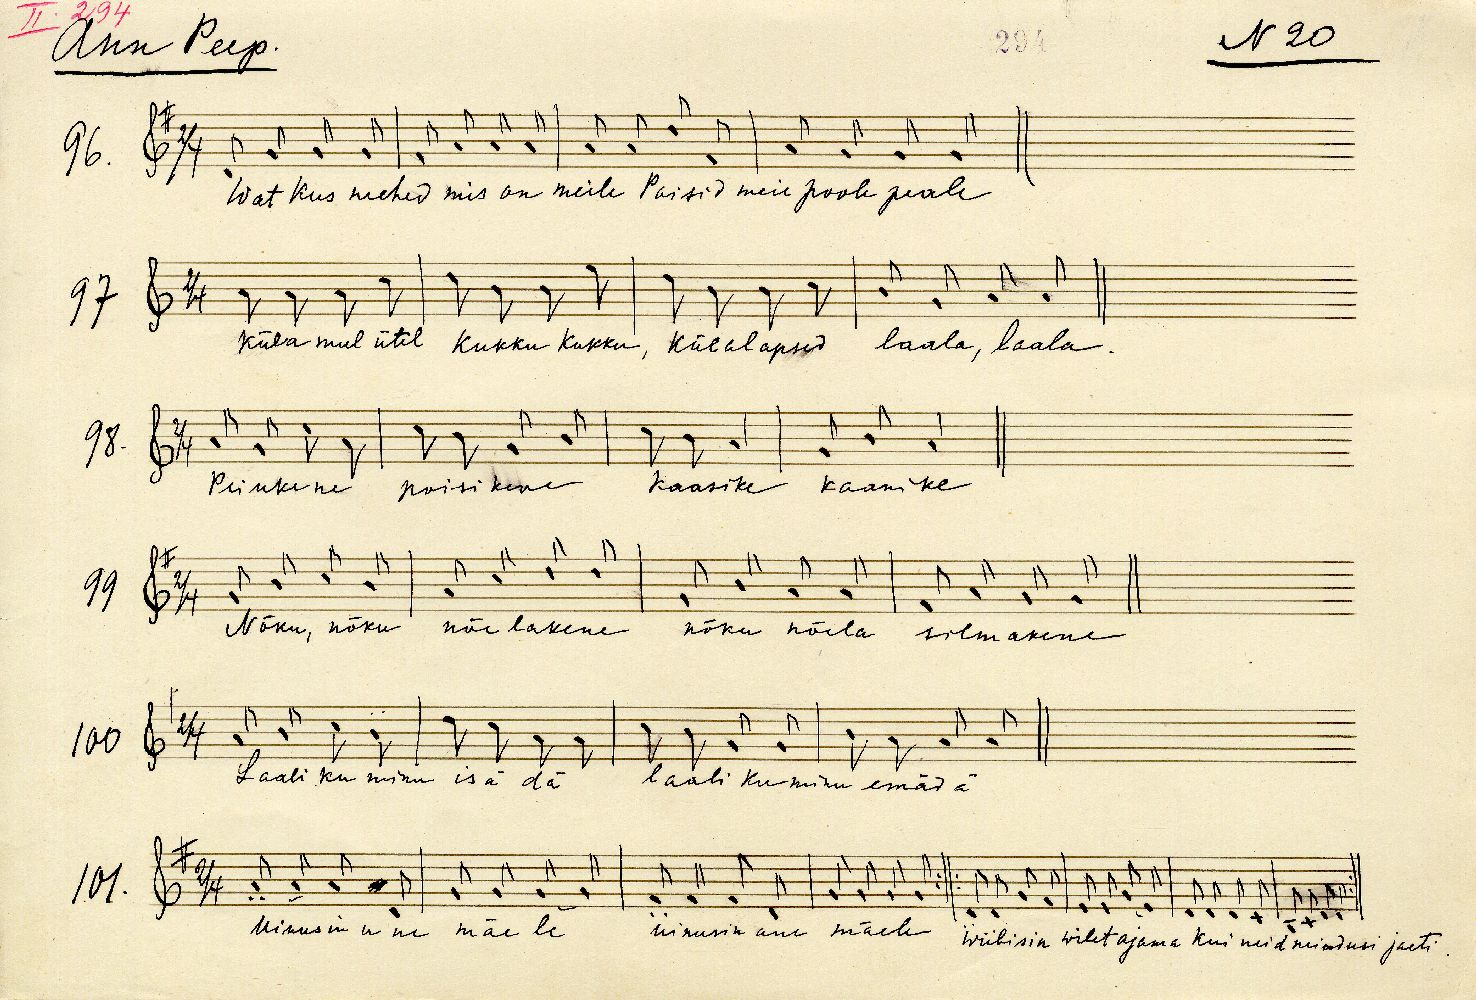 II. 294
Ann Peep.
294
N 20
96.
2/4
Wat kus mehed mis on meile Poisid meie poole peale
97
2/4
Küla mul ütel kukku kukku, külalapsed laala, laala.
98.
2/4
Peiukene poisikene kaasike kaasike
99
2/4
Nõku, nõku nõelakene nõku nõela silmakene
100
2/4
Laali ku minu isä dä laali ku minu emädä
101.
2/4
Uinusin u ne mäe le uinusin une mäele wiibisin wilet ajama kui neid neiudusi jaeti.